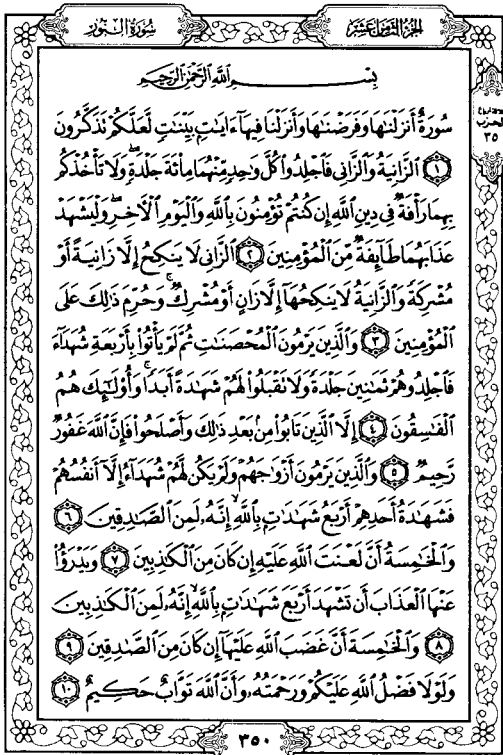 سُورَةُ النُّورِ
الجُزءُ الثَّامِنَ عَشَرَ
الحزب
٣٥
بِسْمِ اللَّهِ الرَّحْمَٰنِ الرَّحِيمِ
سُورَةٌ أَنزَلْنَٰهَا وَفَرَضْنَٰهَا وَأَنزَلْنَا فِيهَآ ءَايَٰتٍۭ بَيِّنَٰتٍ لَّعَلَّكُمْ تَذَكَّرُونَ
﴿١﴾ ٱلزَّانِيَةُ وَٱلزَّانِى فَٱجْلِدُوا۟ كُلَّ وَٰحِدٍ مِّنْهُمَا مِا۟ئَةَ جَلْدَةٍ ۖ وَلَا تَأْخُذْكُم
بِهِمَا رَأْفَةٌ فِى دِينِ ٱللَّهِ إِن كُنتُمْ تُؤْمِنُونَ بِٱللَّهِ وَٱلْيَوْمِ ٱلْءَاخِرِ ۖ وَلْيَشْهَدْ
عَذَابَهُمَا طَآئِفَةٌ مِّنَ ٱلْمُؤْمِنِينَ ﴿٢﴾ ٱلزَّانِى لَا يَنكِحُ إِلَّا زَانِيَةً أَوْ
مُشْرِكَةً وَٱلزَّانِيَةُ لَا يَنكِحُهَآ إِلَّا زَانٍ أَوْ مُشْرِكٌ ۚ وَحُرِّمَ ذَٰلِكَ عَلَى
ٱلْمُؤْمِنِينَ ﴿٣﴾ وَٱلَّذِينَ يَرْمُونَ ٱلْمُحْصَنَٰتِ ثُمَّ لَمْ يَأْتُوا۟ بِأَرْبَعَةِ شُهَدَآءَ
فَٱجْلِدُوهُمْ ثَمَٰنِينَ جَلْدَةً وَلَا تَقْبَلُوا۟ لَهُمْ شَهَٰدَةً أَبَدًا ۚ وَأُو۟لَٰٓئِكَ هُمُ
ٱلْفَٰسِقُونَ ﴿٤﴾ إِلَّا ٱلَّذِينَ تَابُوا۟ مِنۢ بَعْدِ ذَٰلِكَ وَأَصْلَحُوا۟ فَإِنَّ ٱللَّهَ غَفُورٌ
رَّحِيمٌ ﴿٥﴾ وَٱلَّذِينَ يَرْمُونَ أَزْوَٰجَهُمْ وَلَمْ يَكُن لَّهُمْ شُهَدَآءُ إِلَّآ أَنفُسُهُمْ
فَشَهَٰدَةُ أَحَدِهِمْ أَرْبَعُ شَهَٰدَٰتٍۭ بِٱللَّهِ ۙ إِنَّهُۥ لَمِنَ ٱلصَّٰدِقِينَ ﴿٦﴾
وَٱلْخَٰمِسَةُ أَنَّ لَعْنَتَ ٱللَّهِ عَلَيْهِ إِن كَانَ مِنَ ٱلْكَٰذِبِينَ ﴿٧﴾ وَيَدْرَؤُا۟
عَنْهَا ٱلْعَذَابَ أَن تَشْهَدَ أَرْبَعَ شَهَٰدَٰتٍۭ بِٱللَّهِ ۙ إِنَّهُۥ لَمِنَ ٱلْكَٰذِبِينَ
﴿٨﴾ وَٱلْخَٰمِسَةَ أَنَّ غَضَبَ ٱللَّهِ عَلَيْهَآ إِن كَانَ مِنَ ٱلصَّٰدِقِينَ ﴿٩﴾
وَلَوْلَا فَضْلُ ٱللَّهِ عَلَيْكُمْ وَرَحْمَتُهُۥ وَأَنَّ ٱللَّهَ تَوَّابٌ حَكِيمٌ ﴿١٠﴾
٣٥٠